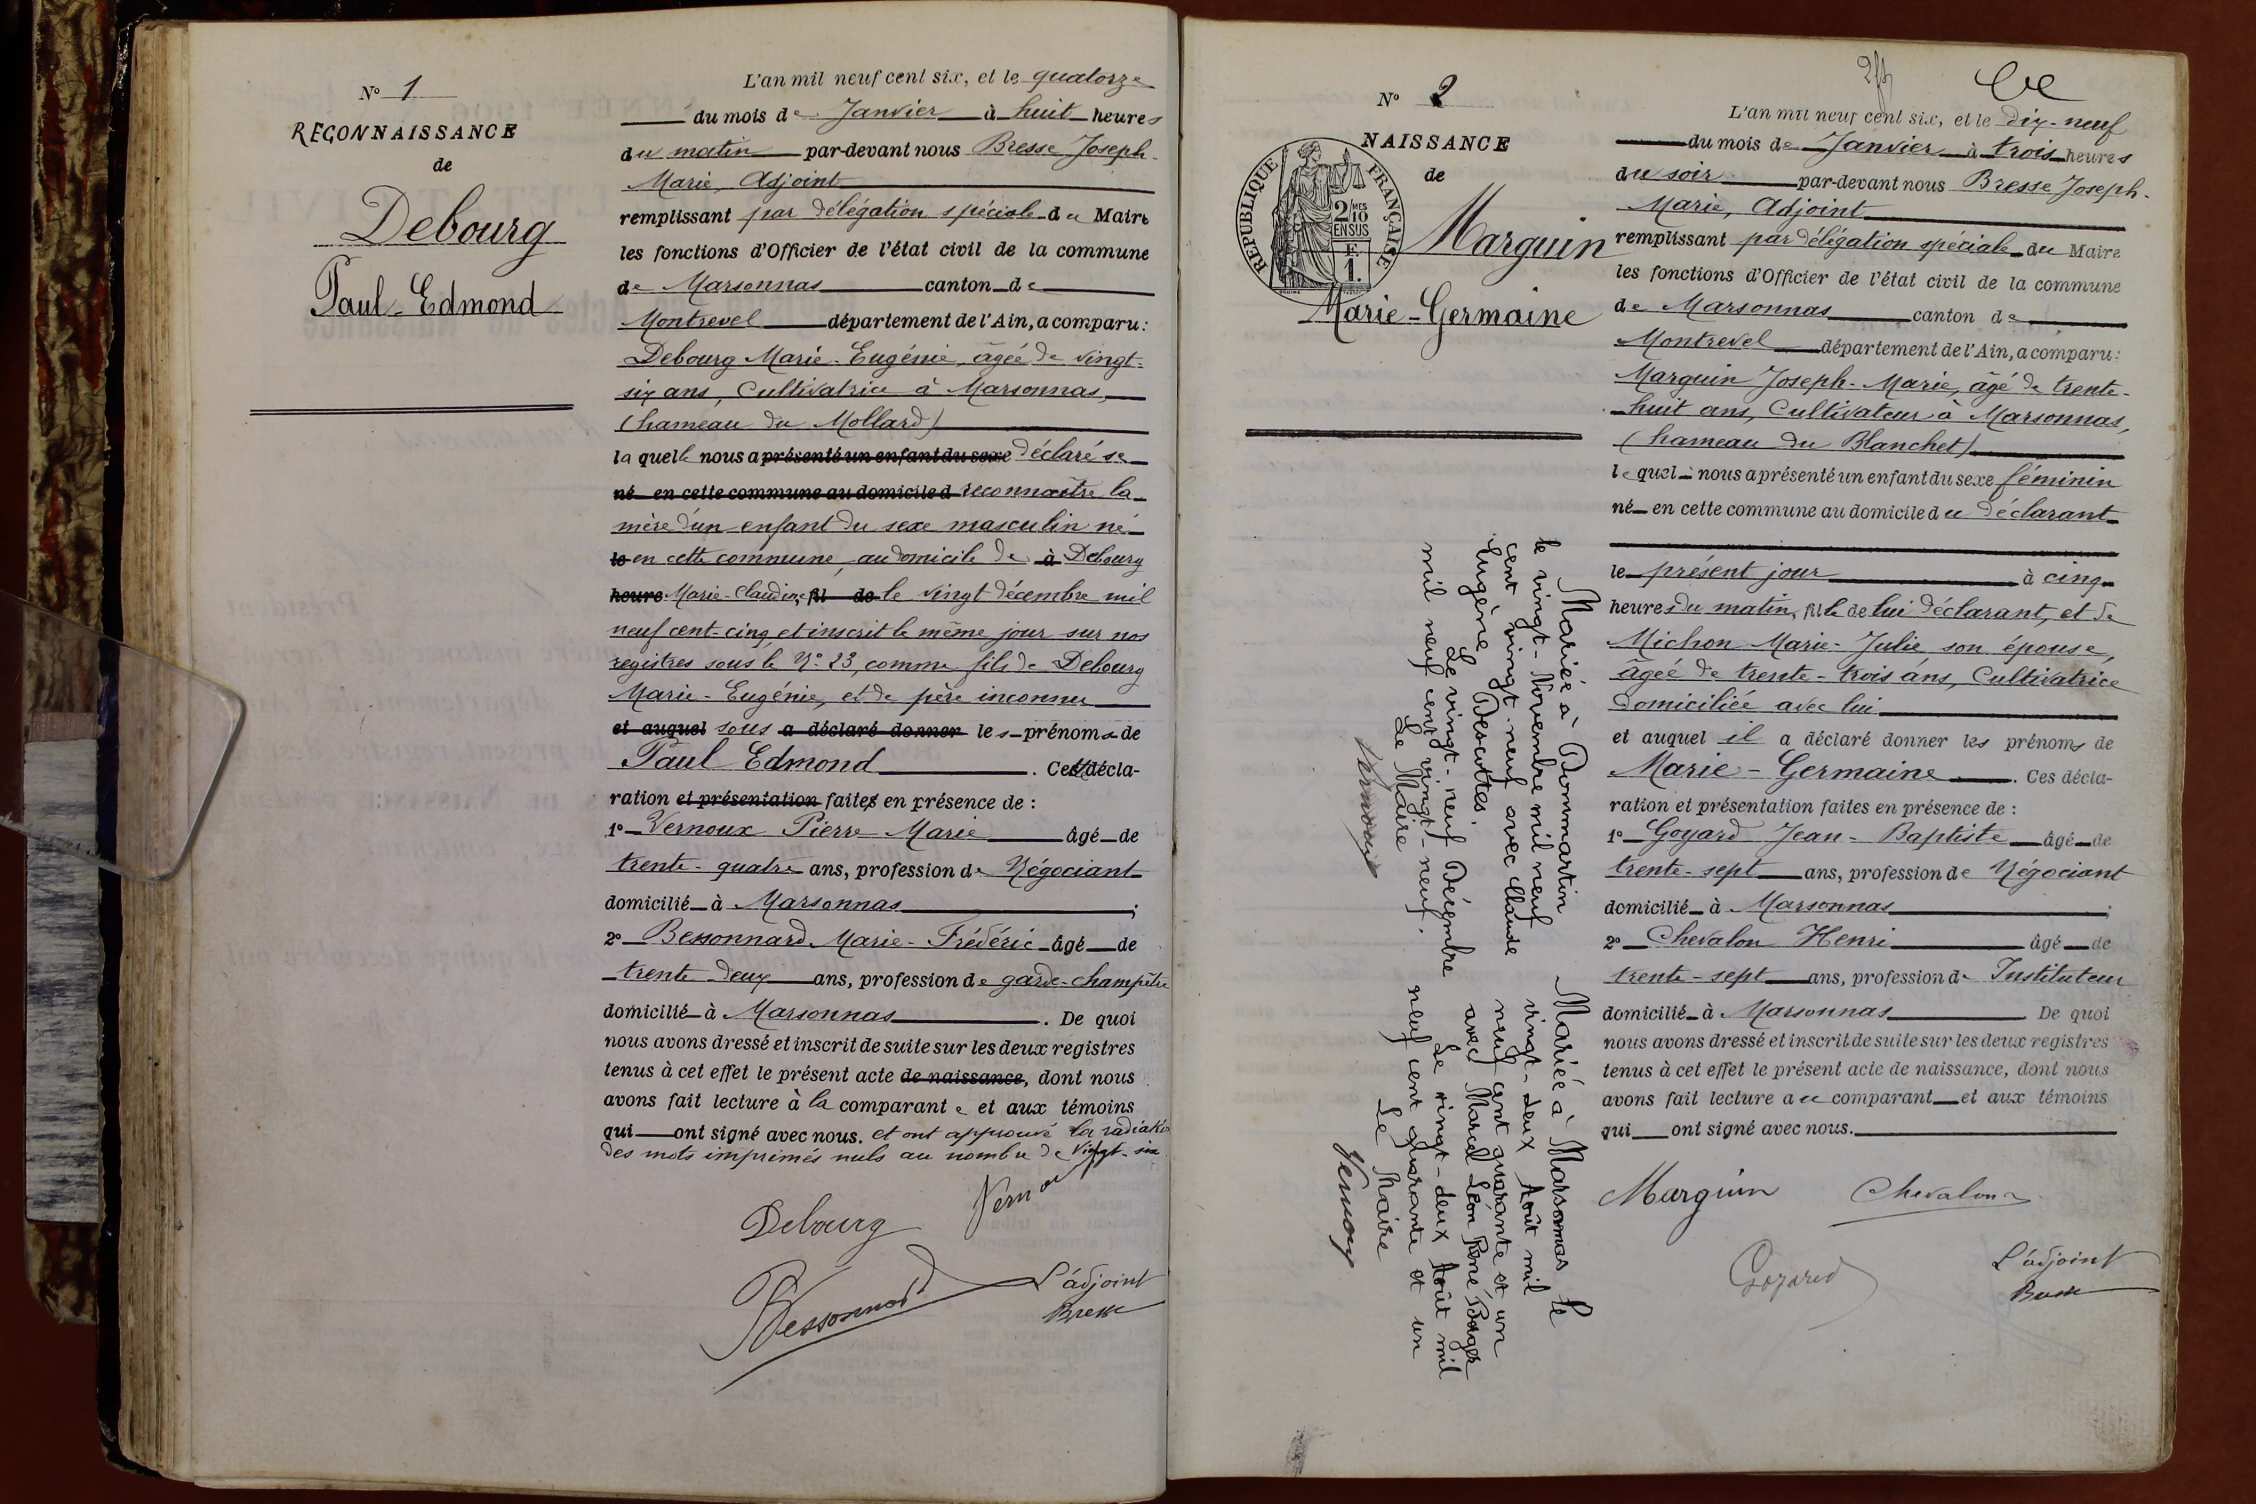 N° 1
RECONNAISSANCE
de
Debourg
Paul-Edmond
L'an mil neuf cent six, et le quatorze
du mois de Janvier à huit heures
du matin par-devant nous Bresse Joseph-
Marie, Adjoint
remplissant par délégation spéciale du Maire
les fonctions d'Officier de l'état civil de la commune
de Marsonnas canton de
Montrevel département de l'Ain, a comparu:
Debourg Marie-Eugénie, âgée de vingt-
six ans, Cultivatrice à Marsonnas,
(hameau du Mollard)
laquelle nous a présenté un enfant du sexe déclaré se
né en cette commune au domicile d reconnaître la
mère d'un enfant du sexe masculin né
le en cette commune, au domicile de à Debourg
heure Marie-Claudine, fil de le vingt décembre mil
neuf cent-cinq, et inscrit le même jour sur nos
registres sous le N° 23, comme fils de Debourg
Marie-Eugénie, et de père inconnu
et auquel sous a déclaré donner les prénoms de
Paul Edmond. Cette décla-
ration et présentation faites en présence de :
1° Vernoux Pierre Marie âgé de
trente-quatre ans, profession de Négociant
domicilié à Marsonnas ;
2° Bessonnard Marie-Frédéric âgé de
trente-deux ans, profession de garde-champêtre
domicilié à Marsonnas. De quoi
nous avons dressé et inscrit de suite sur les deux registres
tenus à cet effet le présent acte de naissance, dont nous
avons fait lecture à la comparante et aux témoins
qui ont signé avec nous. et ont approuvé la radiation
des mots imprimés nuls au nombre de vingt-six
Debourg
Vernoux
Bessonnard
L'adjoint
Bresse
N° 2
NAISSANCE
de
Marguin
Marie-Germaine
RÉPUBLIQUE FRANÇAISE
2 MES
10
EN SUS
F
1
Mariée à Dommartin
le vingt-Novembre mil neuf
cent vingt-neuf avec Claude
Eugène Descottes.
Le vingt-neuf Décembre
mil neuf cent vingt-neuf.
Le Maire
Vernoux
Mariée à Marsonnas le
vingt-deux Août mil
neuf cent quarante et un
avec Marcel Léon René Borger
Le vingt-deux Août mil
neuf cent quarante et un
Le Maire
Vernoux
L'an mil neuf cent six, et le dix-neuf
du mois de Janvier à trois heures
du soir par-devant nous Bresse Joseph-
Marie, Adjoint
remplissant par délégation spéciale du Maire
les fonctions d'Officier de l'état civil de la commune
de Marsonnas canton de
Montrevel département de l'Ain, a comparu:
Marguin Joseph-Marie, âgé de trente-
huit ans, Cultivateur à Marsonnas,
(hameau du Blanchet)
lequel nous a présenté un enfant du sexe féminin
né en cette commune au domicile du déclarant
le présent jour à cinq
heures du matin, fille de lui déclarant, et de
Michon Marie-Julie son épouse,
âgée de trente-trois ans, Cultivatrice
domiciliée avec lui
et auquel il a déclaré donner les prénoms de
Marie-Germaine. Ces décla-
ration et présentation faites en présence de :
1° Goyard Jean-Baptiste âgé de
trente-sept ans, profession de Négociant
domicilié à Marsonnas ;
2° Chevalon Henri âgé de
trente-sept ans, profession de Instituteur
domicilié à Marsonnas De quoi
nous avons dressé et inscrit de suite sur les deux registres
tenus à cet effet le présent acte de naissance, dont nous
avons fait lecture au comparant et aux témoins
qui ont signé avec nous.
Marguin
Chevalon
Goyard
L'adjoint
Bresse